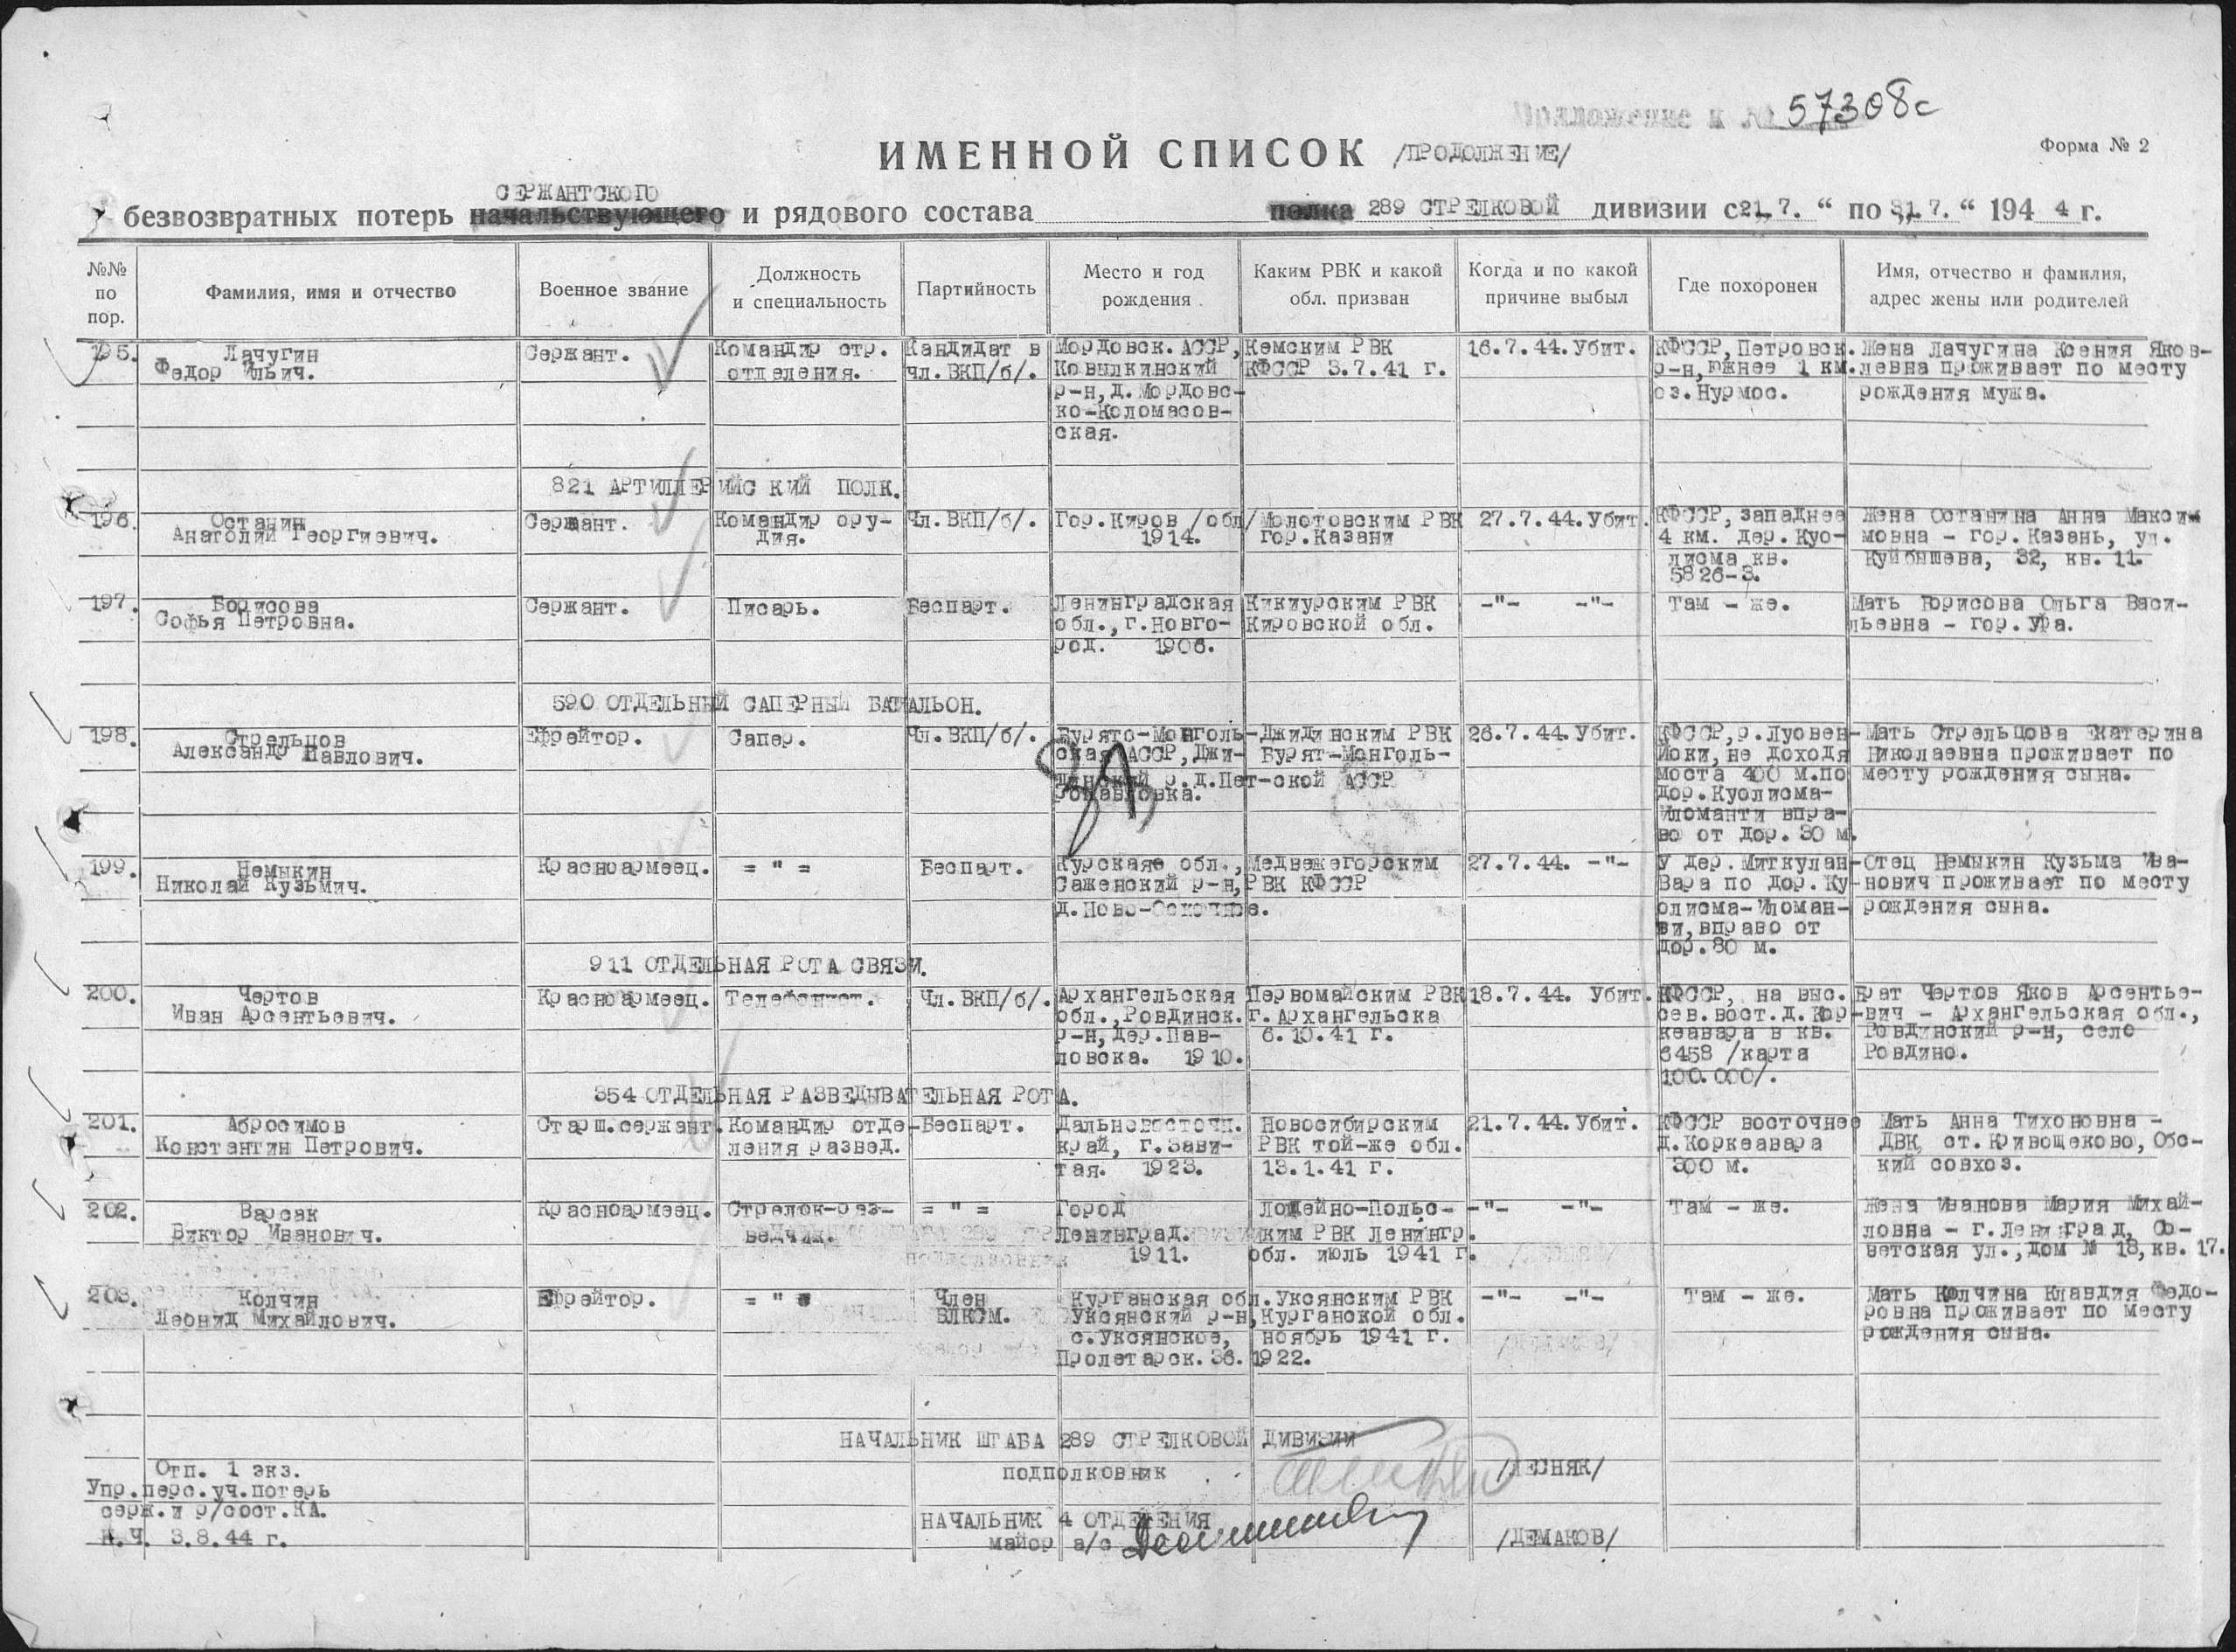 Приложение к № 57308с
ИМЕННОЙ СПИСОК /ПРОДОЛЖЕНИЕ/
Форма № 2
СЕРЖАНТСКОГО
безвозвратных потерь начальствующего и рядового состава полка 289 СТРЕЛКОВОЙ дивизии с 21.7. “ по 31.7. “ 194 4 г.
№№ по пор.
Фамилия, имя и отчество
Военное звание
Должность и специальность
Партийность
Место и год рождения
Каким РВК и какой обл. призван
Когда и по какой причине выбыл
Где похоронен
Имя, отчество и фамилия, адрес жены или родителей
195. Лачугин Сержант. Командир стр. Кандидат в Мордовск. АССР, Кемским РВК 16.7.44. Убит. КФССР, Петровск. Жена Лачугина Ксения Яков-
Федор Ильич. отделения. чл. ВКП/б/. Ковылкинский КФССР 3.7.41 г. р-н, южнее 1 км. левна проживает по месту
р-н, д. Мордовс- оз. Нурмос. рождения мужа.
ко-Коломасов-
ская.
821 АРТИЛЛЕРИЙСКИЙ ПОЛК.
196. Останин Сержант. Командир ору- Чл. ВКП/б/. Гор. Киров /обл/ Молотовским РВК 27.7.44. Убит. КФССР, западнее Жена Останина Анна Макси-
Анатолий Георгиевич. дия. 1914. гор. Казани 4 км. дер. Куо- мовна - гор. Казань, ул.
лисма кв. Куйбышева, 32, кв. 11.
5826-3.
197. Борисова Сержант. Писарь. Беспарт. Ленинградская Кикиурским РВК -"- -"- Там - же. Мать Борисова Ольга Васи-
Софья Петровна. обл., г. Новго- Кировской обл. льевна - гор. Уфа.
род. 1906.
590 ОТДЕЛЬНЫЙ САПЕРНЫЙ БАТАЛЬОН.
198. Стрельцов Ефрейтор. Сапер. Чл. ВКП/б/. Бурято-Монголь- Джидинским РВК 26.7.44. Убит. КФССР, р. Луовен- Мать Стрельцова Екатерина
Александр Павлович. ская АССР, Джи- Бурят-Монголь- Йоки, не доходя Николаевна проживает по
динский р. д. Пет- ской АССР моста 400 м. по месту рождения сына.
ропавловка. дор. Куолисма-
Иломанти впра-
во от дор. 30 м.
199. Немыкин Красноармеец. = " = Беспарт. Курская обл., Медвежегорским 27.7.44. -"- У дер. Миткулан- Отец Немыкин Кузьма Ива-
Николай Кузьмич. Саженский р-н, РВК КФССР Вара по дор. Ку- нович проживает по месту
д. Ново-Оскочное. олисма-Иломан- рождения сына.
ти, вправо от
дор. 80 м.
911 ОТДЕЛЬНАЯ РОТА СВЯЗИ.
200. Чертов Красноармеец. Телефонист. Чл. ВКП/б/. Архангельская Первомайским РВК 18.7.44. Убит. КФССР, на выс. Брат Чертов Яков Арсентье-
Иван Арсентьевич. обл., Ровдинск. г. Архангельска сев. вост. д. Кор- вич - Архангельская обл.,
р-н, дер. Пав- 6.10.41 г. кеавара в кв. Ровдинский р-н, село
ловска. 1910. 6458 /карта Ровдино.
100.000/.
354 ОТДЕЛЬНАЯ РАЗВЕДЫВАТЕЛЬНАЯ РОТА.
201. Абросимов Старш. сержант. Командир отде- Беспарт. Дальневосточн. Новосибирским 21.7.44. Убит. КФССР восточнее Мать Анна Тихоновна -
Константин Петрович. ления развед. край, г. Зави- РВК той-же обл. д. Коркеавара ДВК, ст. Кривощеково, Обс-
тая. 1923. 13.1.41 г. 300 м. кий совхоз.
202. Варсак Красноармеец. Стрелок-раз- = " = Город Лодейно-Польс- -"- -"- Там - же. Жена Иванова Мария Михай-
Виктор Иванович. ведчик. Ленинград. ким РВК Ленингр. ловна - г. Ленинград, Со-
1911. обл. июль 1941 г. ветская ул., дом № 18, кв. 17.
203. Колчин Ефрейтор. = " = Член Курганская обл. Уксянским РВК -"- -"- Там - же. Мать Колчина Клавдия Федо-
Леонид Михайлович. ВЛКСМ. Уксянский р-н, Курганской обл. ровна проживает по месту
с. Уксянское, ноябрь 1941 г. рождения сына.
Пролетарск. 36. 1922.
НАЧАЛЬНИК ШТАБА 289 СТРЕЛКОВОЙ ДИВИЗИИ
подполковник /ЛЕСНЯК/
НАЧАЛЬНИК 4 ОТДЕЛЕНИЯ
майор а/с /ДЕМАКОВ/
Отп. 1 экз.
Упр. перс. уч. потерь
серж. и р/сост. КА.
Н.Ч. 3.8.44 г.